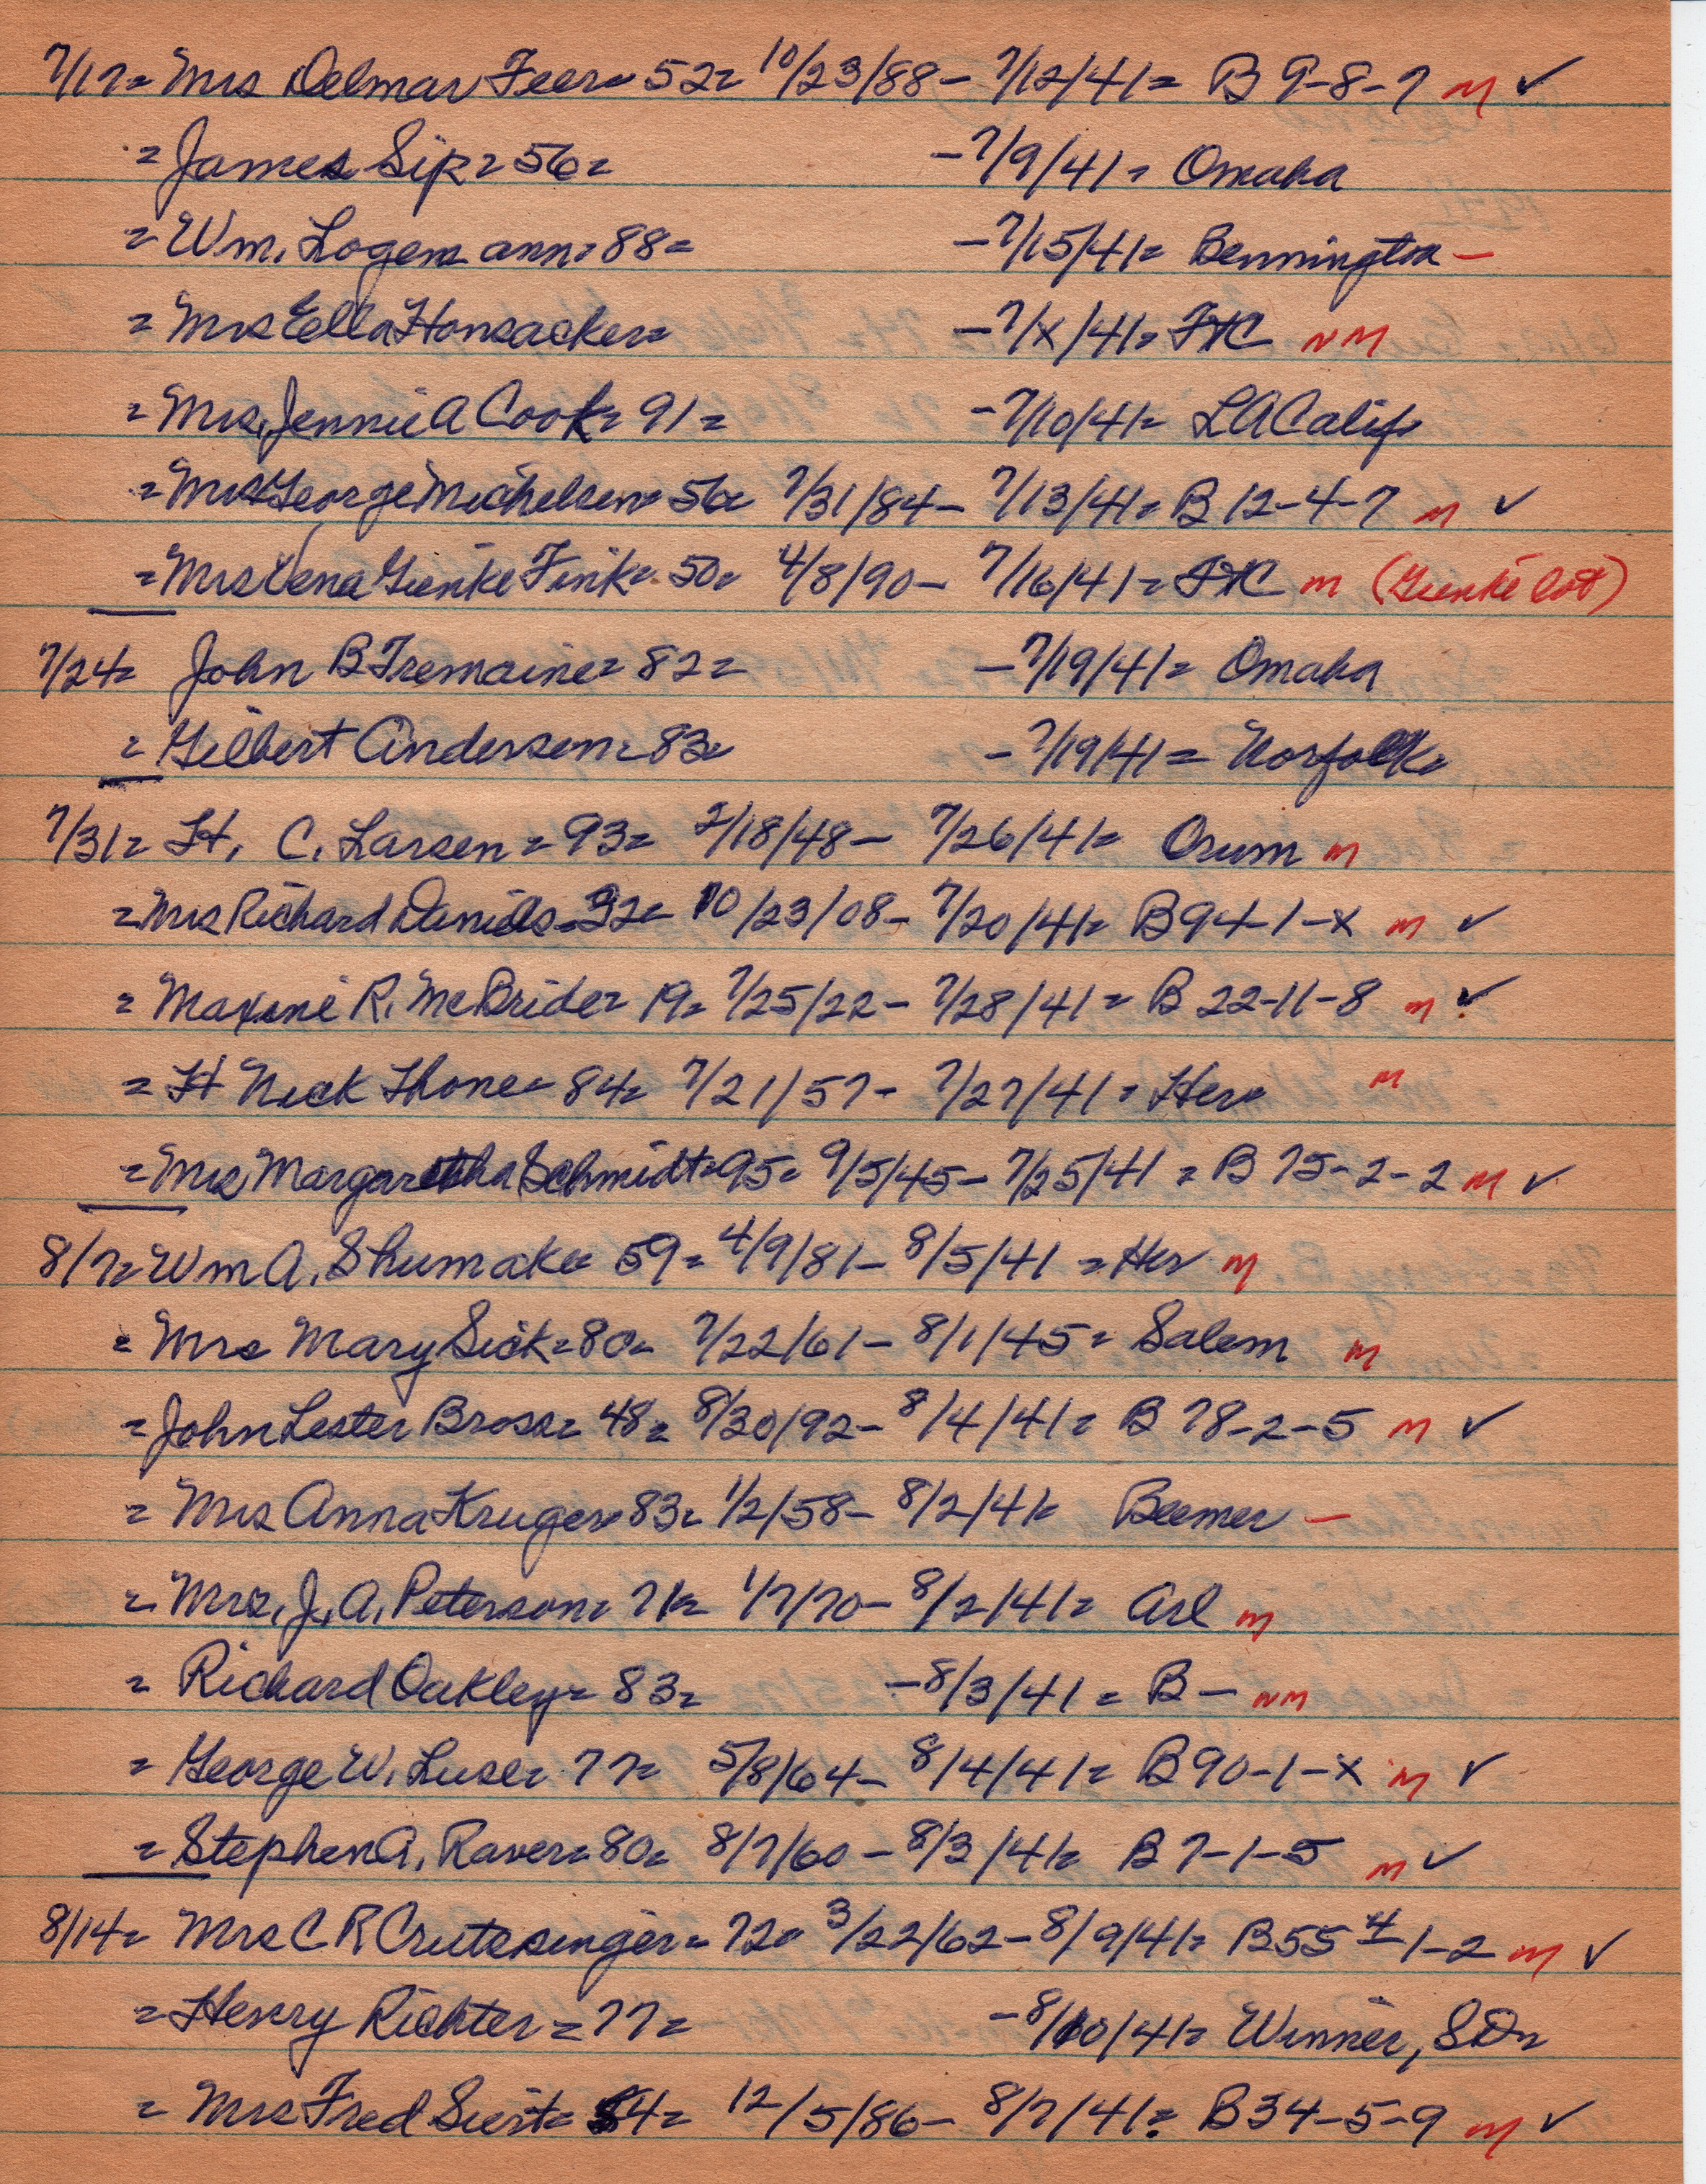 7/17= Mrs Delmar Feer= 52= 10/23/88- 7/12/41= B 9-8-7 M ✓
= James Sip= 56= -7/9/41= Omaha
= Wm. Logemann= 88= -7/15/41= Bennington -
= Mrs Ella Honsacker= -7/x/41= FtC NM
= Mrs, Jennie A Cook= 91= -7/10/41= LA Calif
= Mrs George Michelsen= 56= 7/31/84- 7/13/41= B 12-4-7 M ✓
= Mrs Lena Gienke Fink= 50= 4/8/90- 7/16/41= FtC M (Gienke lot)
7/24= John B Tremaine= 82= -7/19/41= Omaha
= Gilbert Andersen= 83= -7/19/41= Norfolk=
7/31= H. C. Larsen= 93= 2/18/48- 7/26/41= Orum M
= Mrs Richard Daniels= 32= 10/23/08- 7/20/41= B 94-1-x M ✓
= Maxine R. McBride= 19= 7/25/22- 7/28/41= B 22-11-8 M ✓
= H Nick Thone= 84= 7/21/57- 7/27/41= Her= M
= Mrs Margaretha Schmidt= 95= 9/5/45- 7/25/41= B 75-2-2 M ✓
8/7= Wm A. Shumake= 59= 4/9/81- 8/5/41= Her M
= Mrs Mary Sick= 80= 7/22/61- 8/1/45= Salem M
= John Lester Bross= 48= 8/30/92- 8/4/41= B 78-2-5 M ✓
= Mrs Anna Kruger= 83= 1/2/58- 8/2/41= Beemer -
= Mrs, J. A. Peterson= 71= 1/7/70- 8/2/41= Arl M
= Richard Oakley= 83= -8/3/41= B - NM
= George W. Luse= 77= 5/8/64- 8/4/41= B 90-1-x M ✓
= Stephen A. Raver= 80= 8/7/60- 8/3/41= B 7-1-5 M ✓
8/14= Mrs C R Crutsinger= 72= 3/22/62- 8/9/41= B 55 4 1-2 M ✓
= Henry Richter= 77= -8/10/41= Winner, SD=
= Mrs Fred Siert= 54= 12/5/86- 8/7/41= B 34-5-9 M ✓